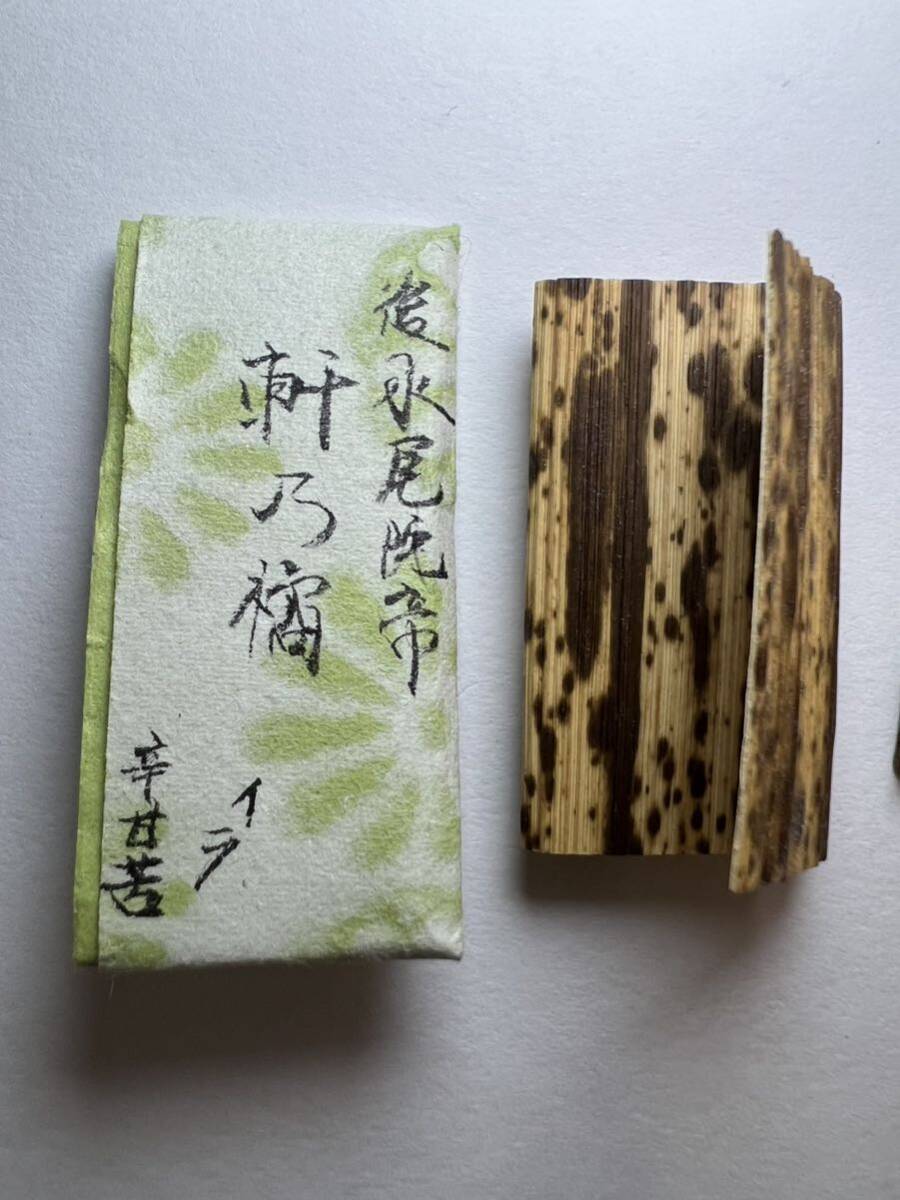 後水尾院帝
軒乃橘
イラ
辛甘苦